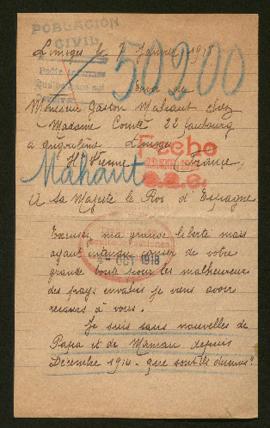 POBLACIÓN
CIVIL
Limoges le
50200
Monsieur Gaston Mahaut chez
Madame Comte 22 faubourg
d'Angoulême Limoges
Hte Vienne France
Fecho
Mahaut
A Sa Majesté le Roi d'Espagne
Excusez ma grande liberté mais
ayant entendu parler de votre
grande bonté pour les malheureux
des pays envahis je viens avoir
recours à vous.
OCT 1918
Je suis sans nouvelles de
Papa et de Maman depuis
Décembre 1914 - que sont-ils devenus